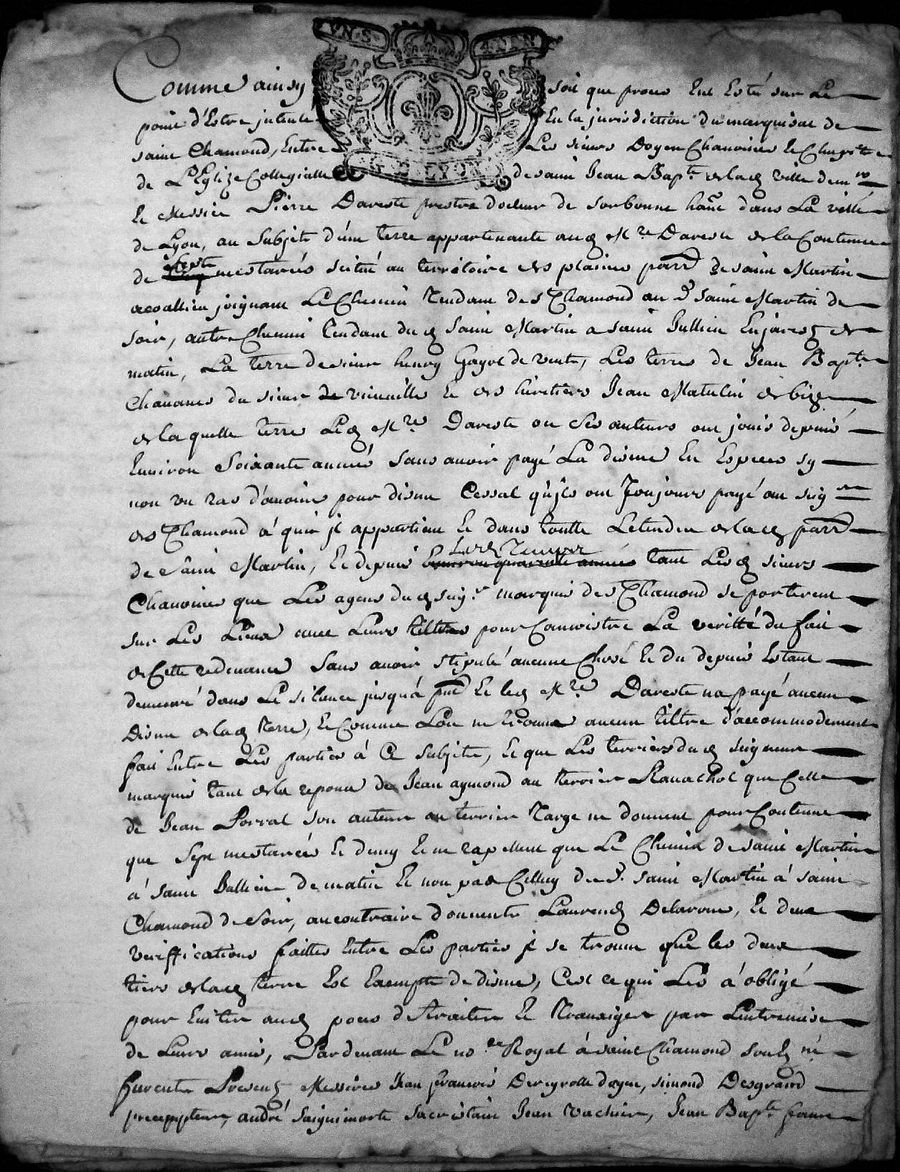 VN.S. 4.DEN
G. D. LYON
Comme ainsy soit que proces Eut Esté sur Le
point d'Estre jntenté En la jurisdiction du marquisat de
saint Chamond, Entre Les sieurs Doyen Chanoines Et Chapt.re
de L'Eglize Collegialle de saint Jean Bapt.e de lad ville
Et Messire Pierre Dareste prestre docteur de Sorbonne dans La ville
de Lyon, au Subjet d'une terre appartenante aud M.re Dareste de la Contenue
de sept mestarées scitué au territoire des plaines parr.e de saint Martin
acoallieu joignant Le Chemin Tendant de S.t Chamond aud saint Martin de
soir, autre Chemin tendant dud saint Martin a saint Jullien Enjarest de
matin, La terre de sieur henry Gayot de vent, Les terre de Jean Bapt.e
Chavanes du sieur de vieuville Et des héritiers Jean Matelin de bize
de laquelle terre Led M.re Dareste ou Ses auteurs ont jouis depuis
Environ Soixante années sans avoir payé La disme En Especes sy
non un ras d'avoine pour disme Cessal qu'jls ont Toujours payé au seig.r
de S.t Chamond à qui jl appartient Et dans toutte L'etendue de lad parr.e
de Saint Martin, Et depuis Led Temps tant Lesd sieurs
Chanoines que Les agens dud seig.r marquis de S.t Chamond se porterent
sur Les Lieux avec Leurs tiltres pour Connoistre La veritté du fait
de Cette redevance Sans avoir stipulé aucune Chose Et du depuis Estant
demeuré dans Le silence jusqu'à p.nt Et led M.re Dareste na payé aucun
Disme de lad terre, Et Comme L'on ne trouve aucun tiltre d'accommodement
fait Entre Les parties à Ce Subjète, Et que Les terriers dud Seigneur
marquis tant de la reponse de Jean aymond au terrier Ravachol que Celle
de Jean Sorral son auteur au terrier Targe ne donnent pour Contenue
que Sept mestarées Et demy Et ne rapellent que Le Chemin de saint Martin
à saint Jullien de matin Et non pas Celluy de saint Martin à saint
Chamond de Soir, au contraire donnent Laurend Delaroue, Et de
veriffications faittes Entre Les parties jl se trouve que les deux
tiers de lad terre Est Exempte de disme, C'est ce qui Les à obligé
pour Eviter aud proces de traitter Et Transiger par L'entremise
de Leurs amis, Pardevant Le no.re Royal à saint Chamond soub.é
furent Presens Messires Jean françois Deveyrolle doyen, simond Desgrand
precepteur, andré Saiguimorte Sacristain Jean vachier, Jean Bap.te faure